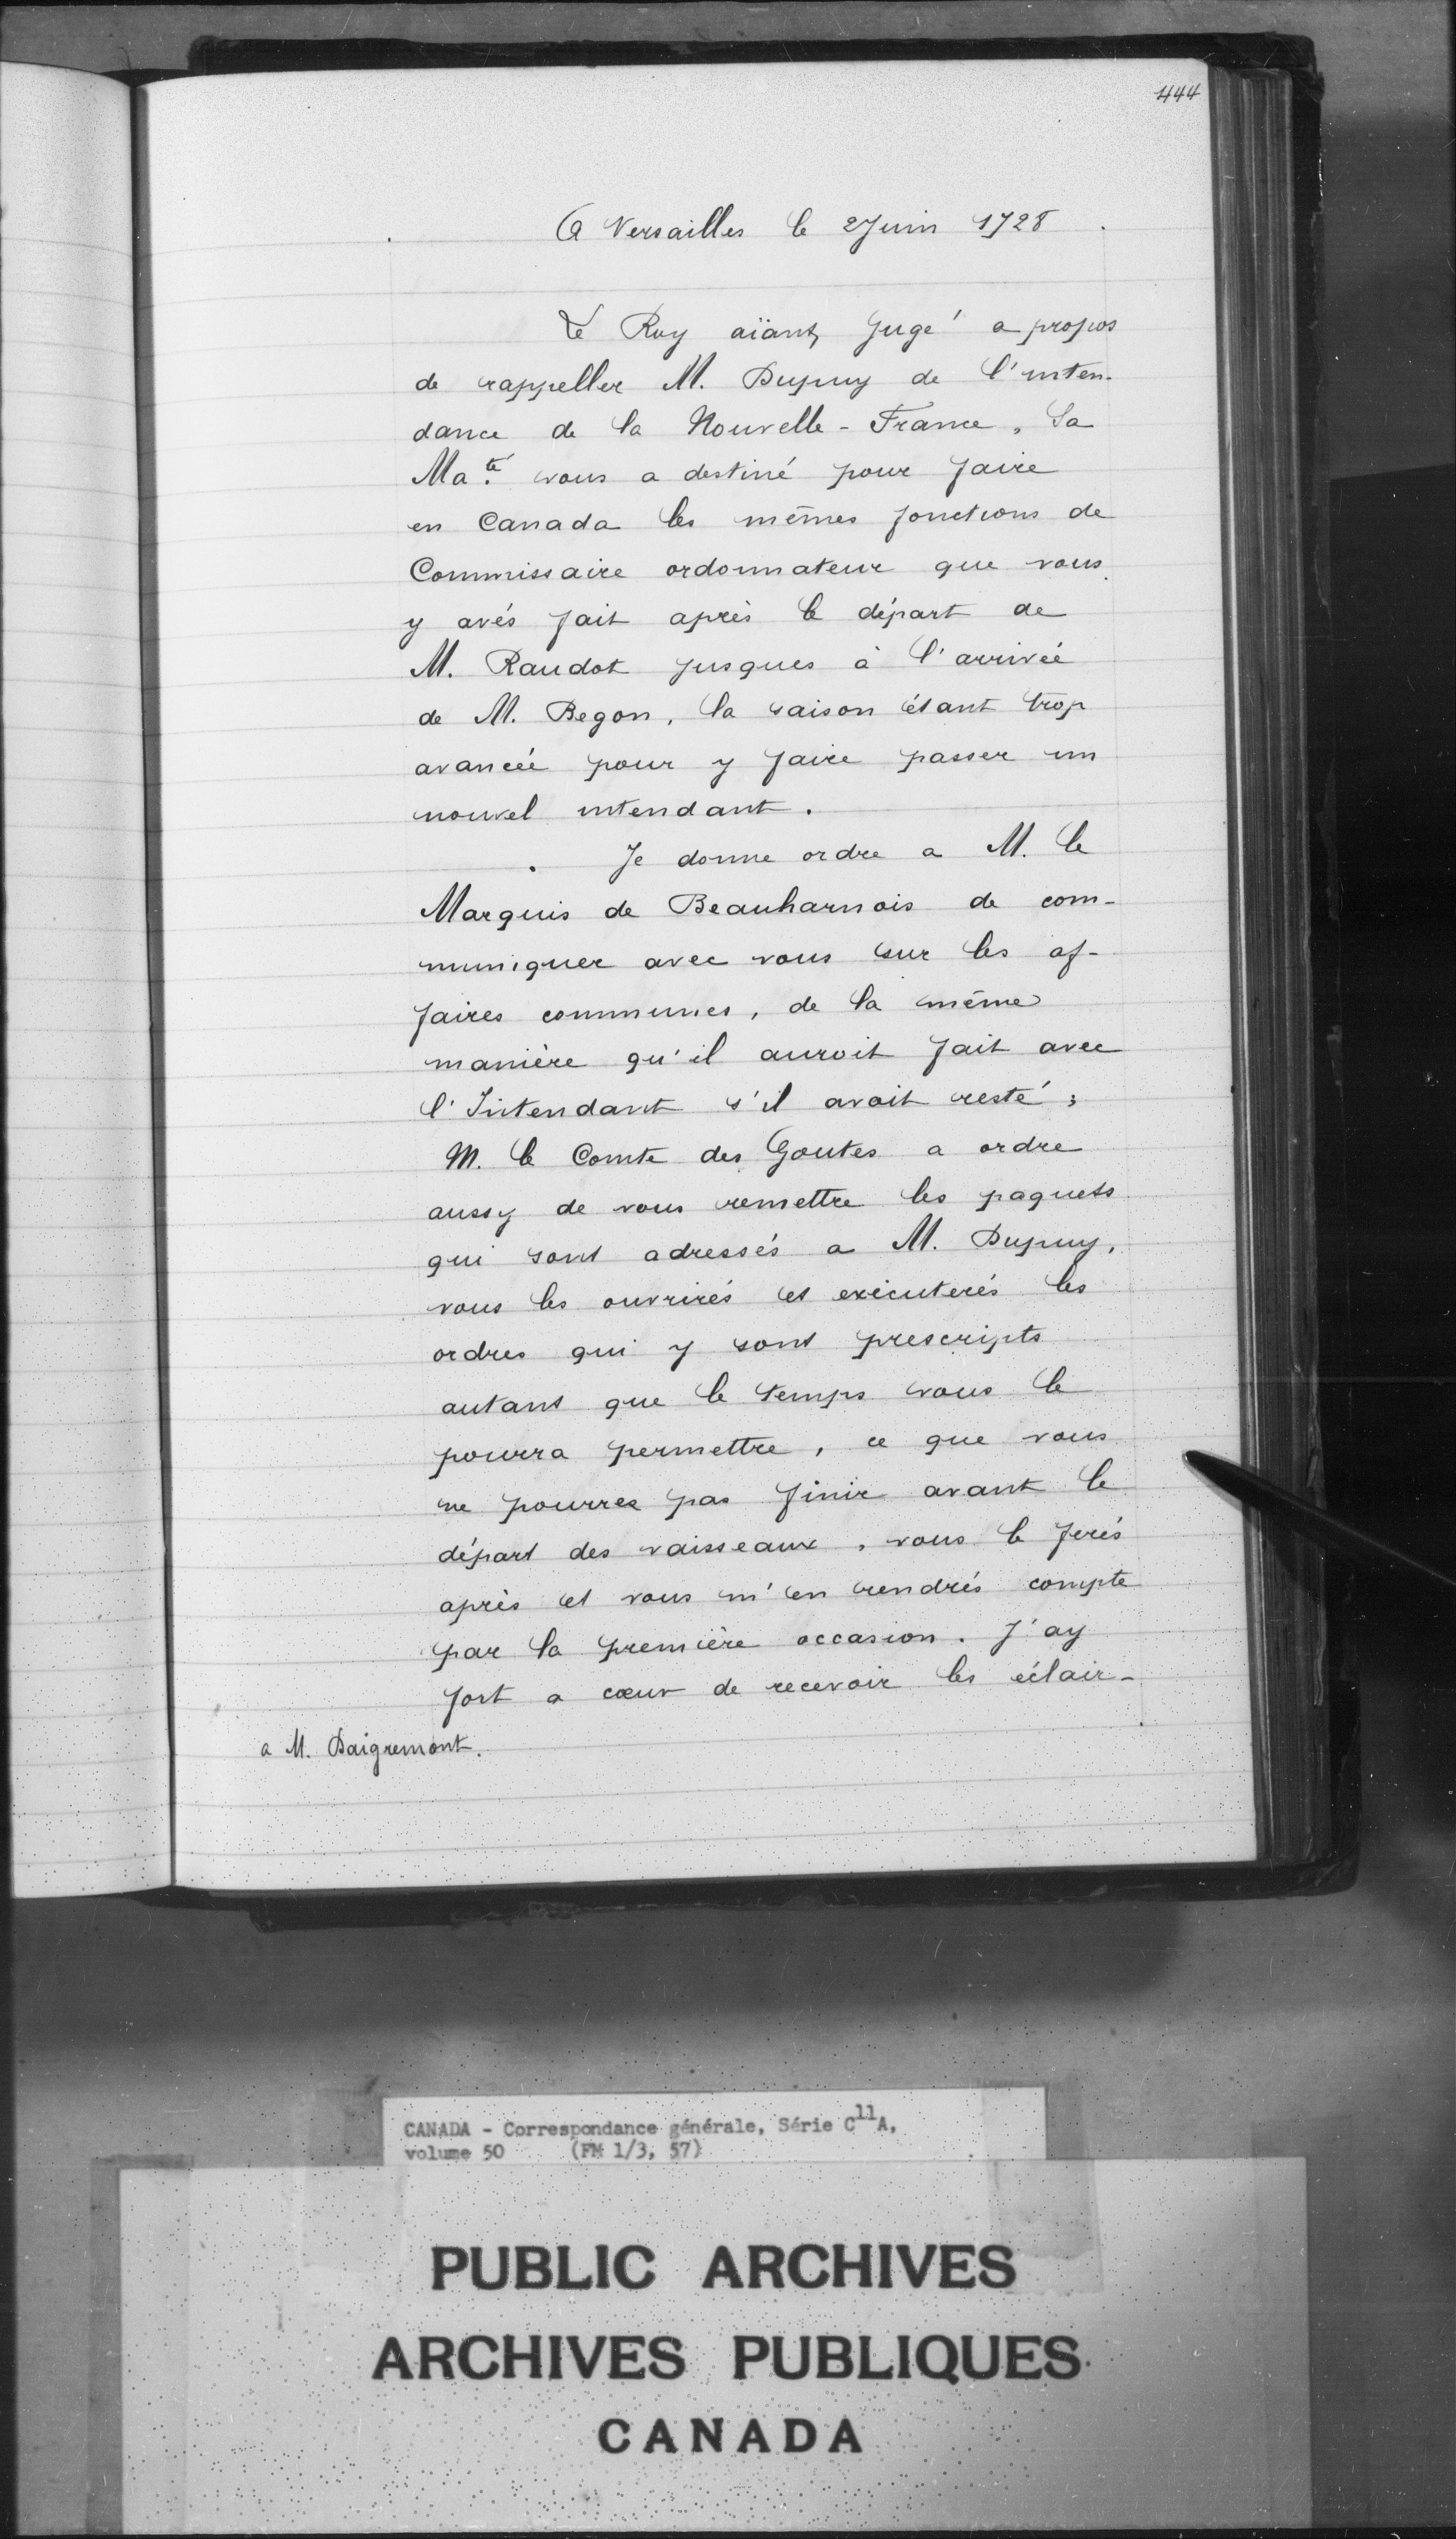 444
A Versailles le 2 Juin 1728
Le Roy aïant Jugé a propos
de rappeller M. Dupuy de l'inten-
dance de la Nouvelle-France, Sa
Ma.té vous a destiné pour faire
en Canada les mêmes fonctions de
Commissaire ordonnateur que vous
y avés fait après le départ de
M. Raudot jusques à l'arrivée
de M. Begon, la saison étant trop
avancée pour y faire passer un
nouvel intendant.
Je donne ordre a M. le
Marquis de Beauharnois de com-
muniquer avec vous sur les af-
faires communes, de la même
manière qu'il auroit fait avec
l'Intendant s'il avoit resté;
M. le Comte des Goutes a ordre
aussy de vous remettre les paquets
qui sont adressés a M. Dupuy,
vous les ouvrirés et exécuterés les
ordres qui y sont prescripts
autant que le temps vous le
pourra permettre, ce que vous
ne pourrez pas finir avant le
départ des vaisseaux, vous le ferés
après et vous m'en rendrés compte
par la première occasion. J'ay
fort a cœur de recevoir les éclair-
a M. Daigremont.
CANADA - Correspondance générale, Série C11A,
volume 50 (FM 1/3, 57)
PUBLIC ARCHIVES
ARCHIVES PUBLIQUES
CANADA